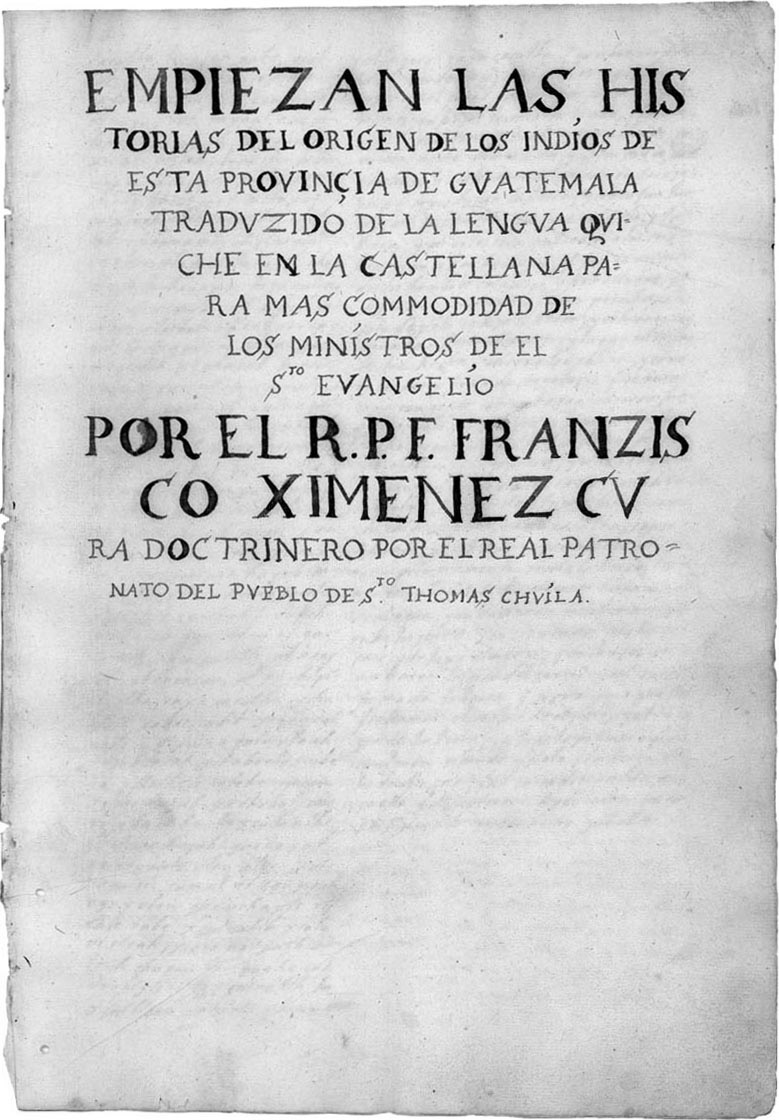 EMPIEZAN LAS HIS
TORIAS DEL ORIGEN DE LOS INDIOS DE
ESTA PROVINÇIA DE GVATEMALA
TRADVZIDO DE LA LENGVA QVI-
CHE EN LA CASTELLANA PA=
RA MAS COMMODIDAD DE
LOS MINISTROS DE EL
S.TO EVANGELIO
POR EL R.P.F. FRANZIS
CO XIMENEZ CV
RA DOCTRINERO POR EL REAL PATRO=
NATO DEL PVEBLO DE S.TO THOMAS CHVILA.